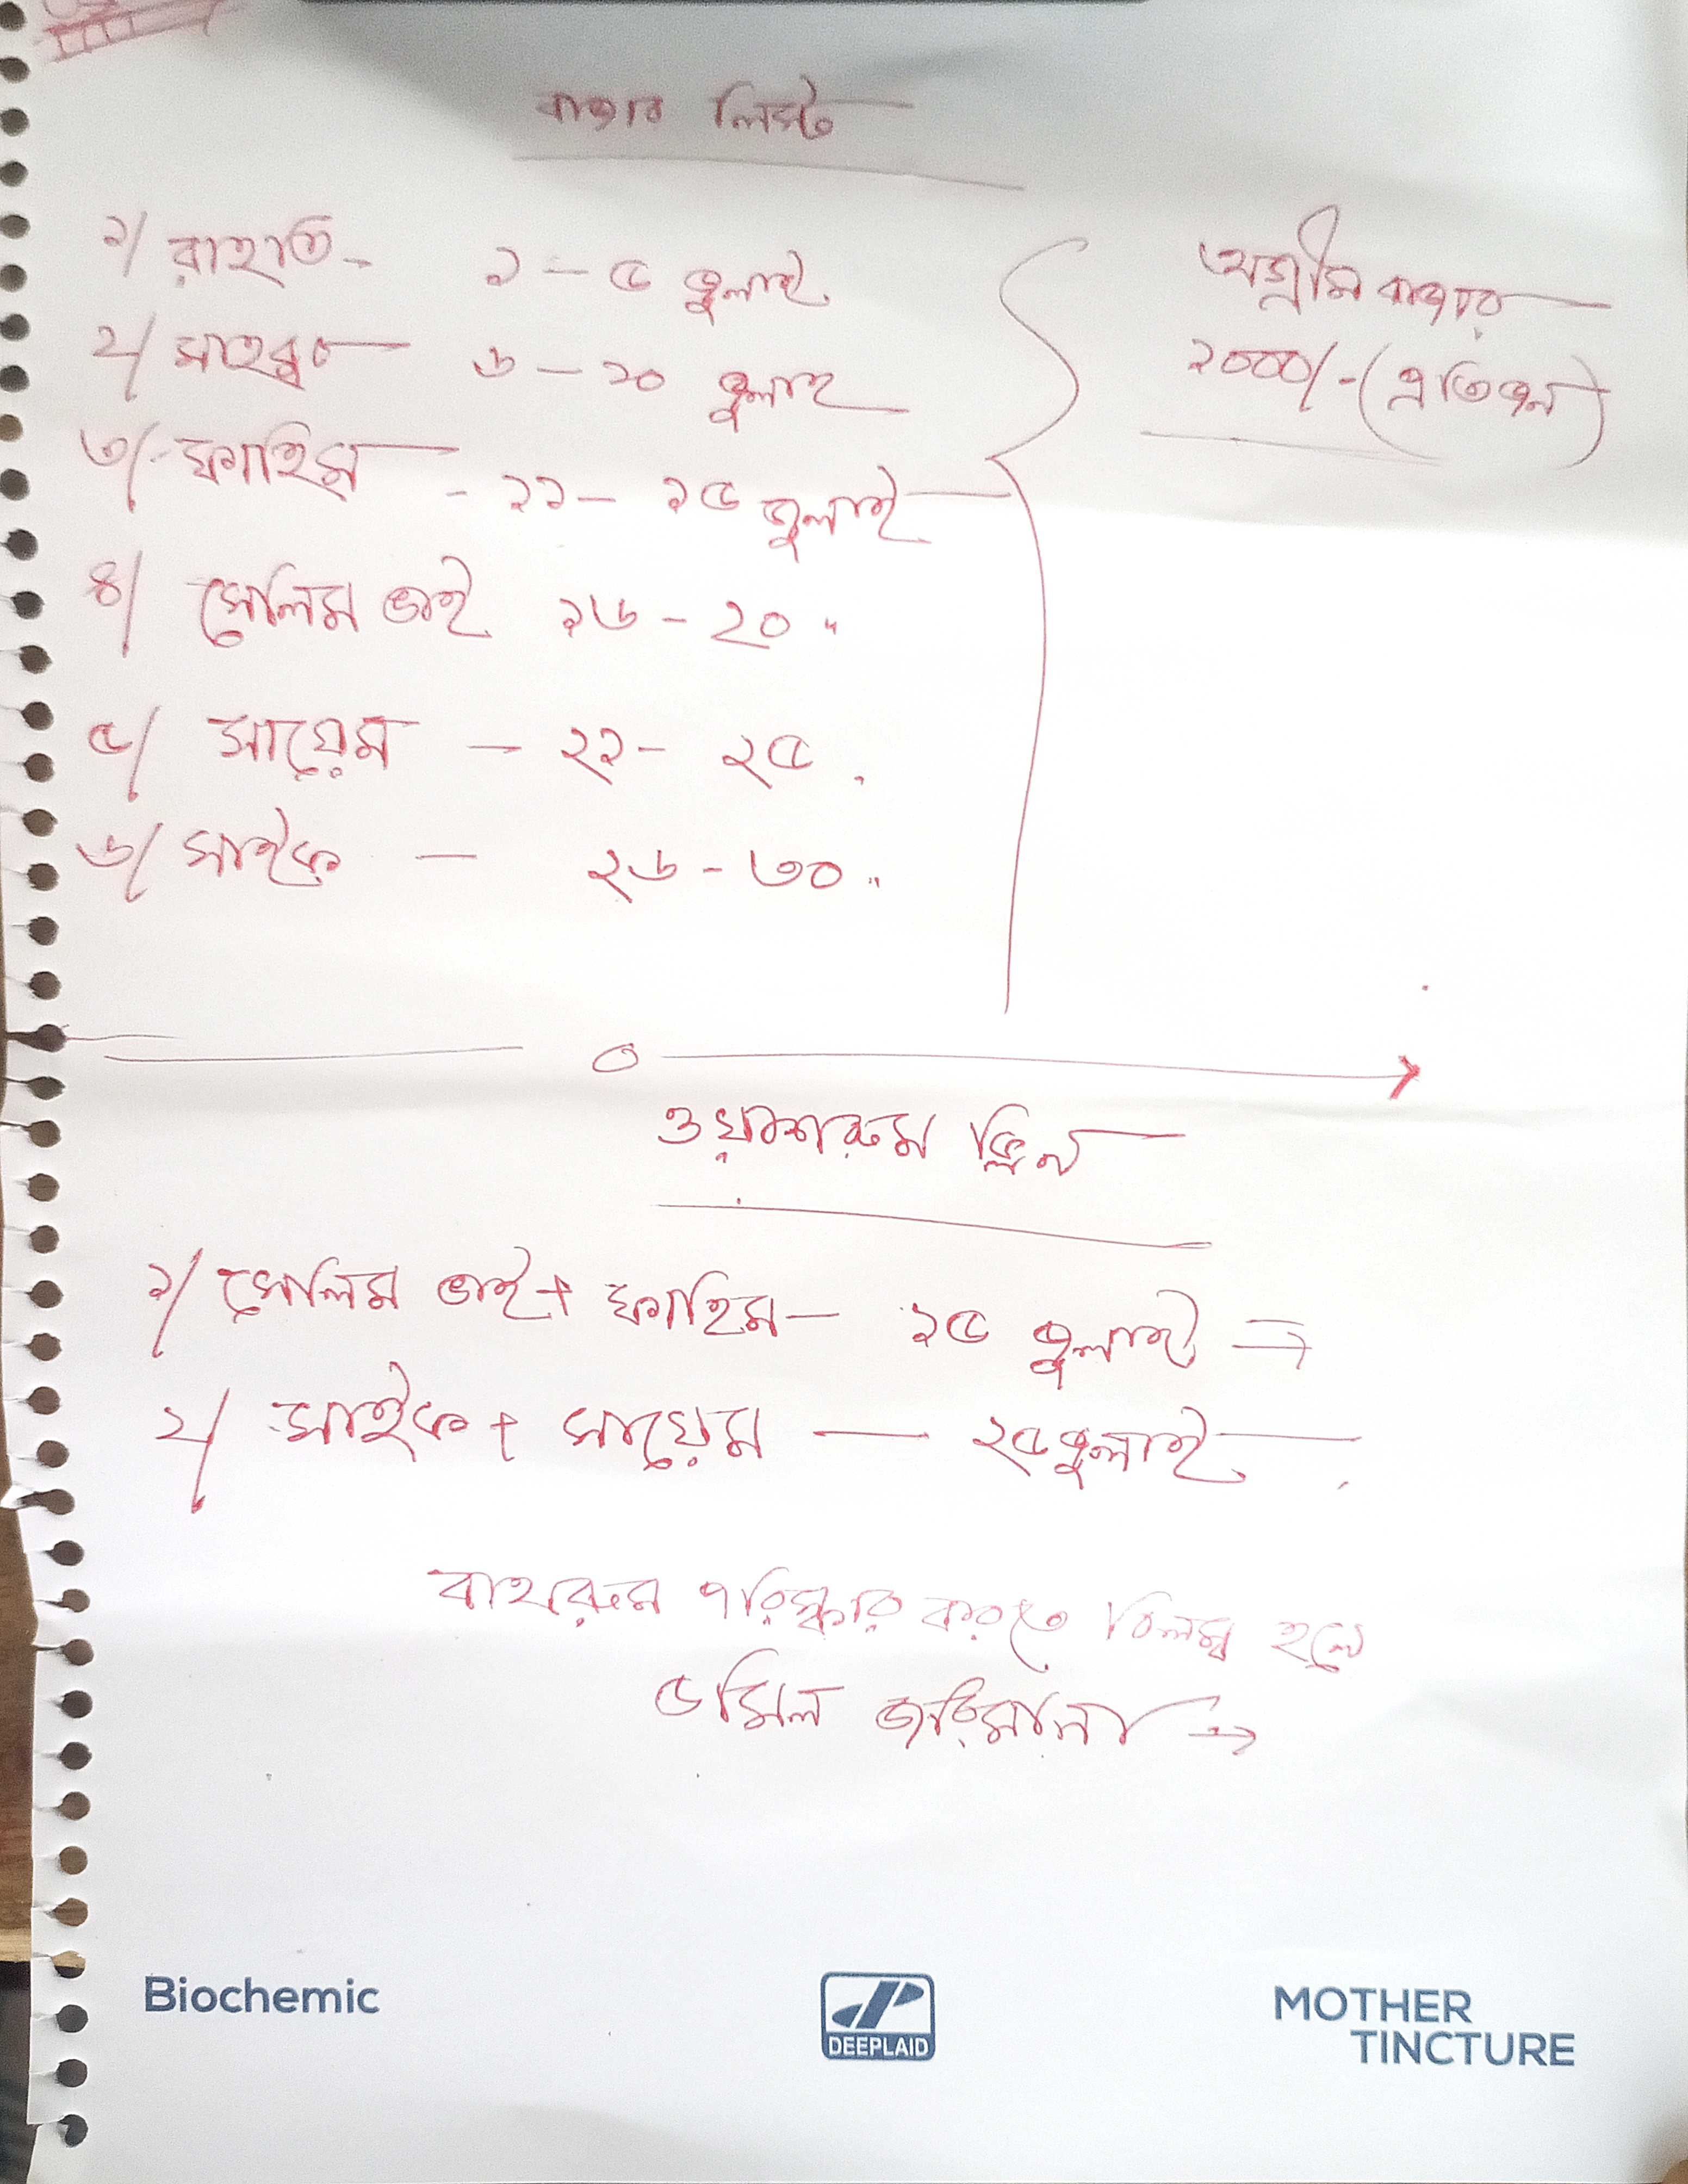 বাজার লিস্ট
১/ রাহাত - ১ – ৫ জুলাই
২/ মাহবুব ৬ – ১০ জুলাই
৩/ ফাহিম - ১১ – ১৫ জুলাই
৪/ সেলিম ভাই ১৬ – ২০ "
৫/ সায়েম – ২১ – ২৫ "
৬/ সাইফ – ২৬ – ৩০ "
অগ্রীম বাজার
২০০০/- (প্রতিজন)
ওয়াশরুম ক্লিন
১/ সেলিম ভাই + ফাহিম – ১৫ জুলাই ⇒
২/ সাইফ + সায়েম — ২৫ জুলাই
বাথরুম পরিস্কার করতে বিলম্ব হলে
৫ মিল জরিমানা →
Biochemic
DEEPLAID
MOTHER
TINCTURE